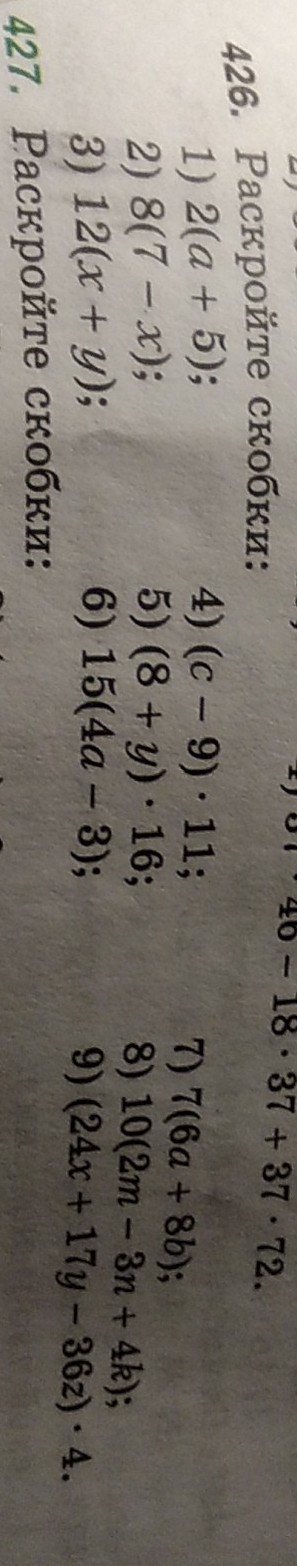 46 − 18 · 37 + 37 · 72.
426. Раскройте скобки:
1) 2(a + 5); 4) (c − 9) · 11; 7) 7(6a + 8b);
2) 8(7 − x); 5) (8 + y) · 16; 8) 10(2m − 3n + 4k);
3) 12(x + y); 6) 15(4a − 3); 9) (24x + 17y − 36z) · 4.
427. Раскройте скобки: